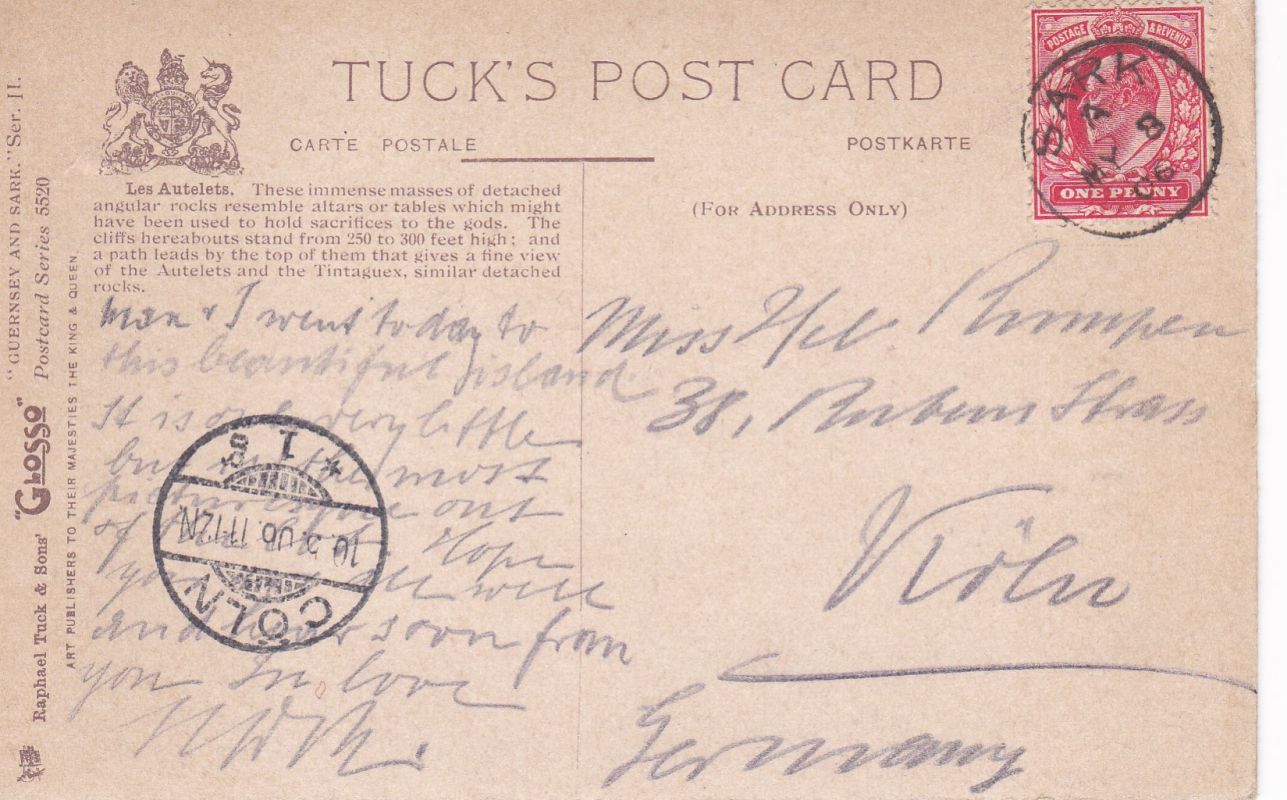 TUCK'S POST CARD
CARTE POSTALE
POSTKARTE
(FOR ADDRESS ONLY)
Les Autelets. These immense masses of detached
angular rocks resemble altars or tables which might
have been used to hold sacrifices to the gods. The
cliffs hereabouts stand from 250 to 300 feet high; and
a path leads by the top of them that gives a fine view
of the Autelets and the Tintaguex, similar detached
rocks.
& I went today to
this beautiful island.
It is only very little
but the most
picturesque out
of Hope
you all well
and hear soon from
you In love
Miss Hel.
38, Rubens Strass
Köln
Germany
POSTAGE & REVENUE
ONE PENNY
SARK
8
06
CÖLN
10.5.06.11-12N
* 1
"GUERNSEY AND SARK." Ser. II.
Raphael Tuck & Sons' "GLOSSO" Postcard Series 5520
ART PUBLISHERS TO THEIR MAJESTIES THE KING & QUEEN.